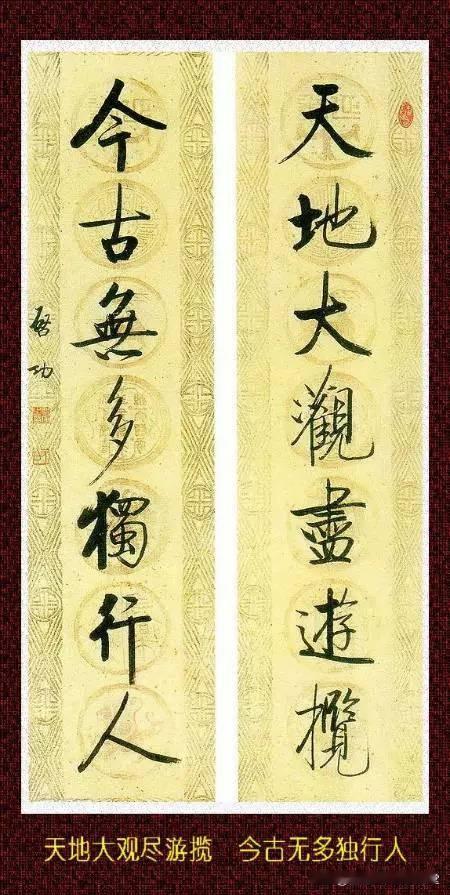 天地大觀盡遊攬
今古無多獨行人
啓功
天地大观尽游揽 今古无多独行人